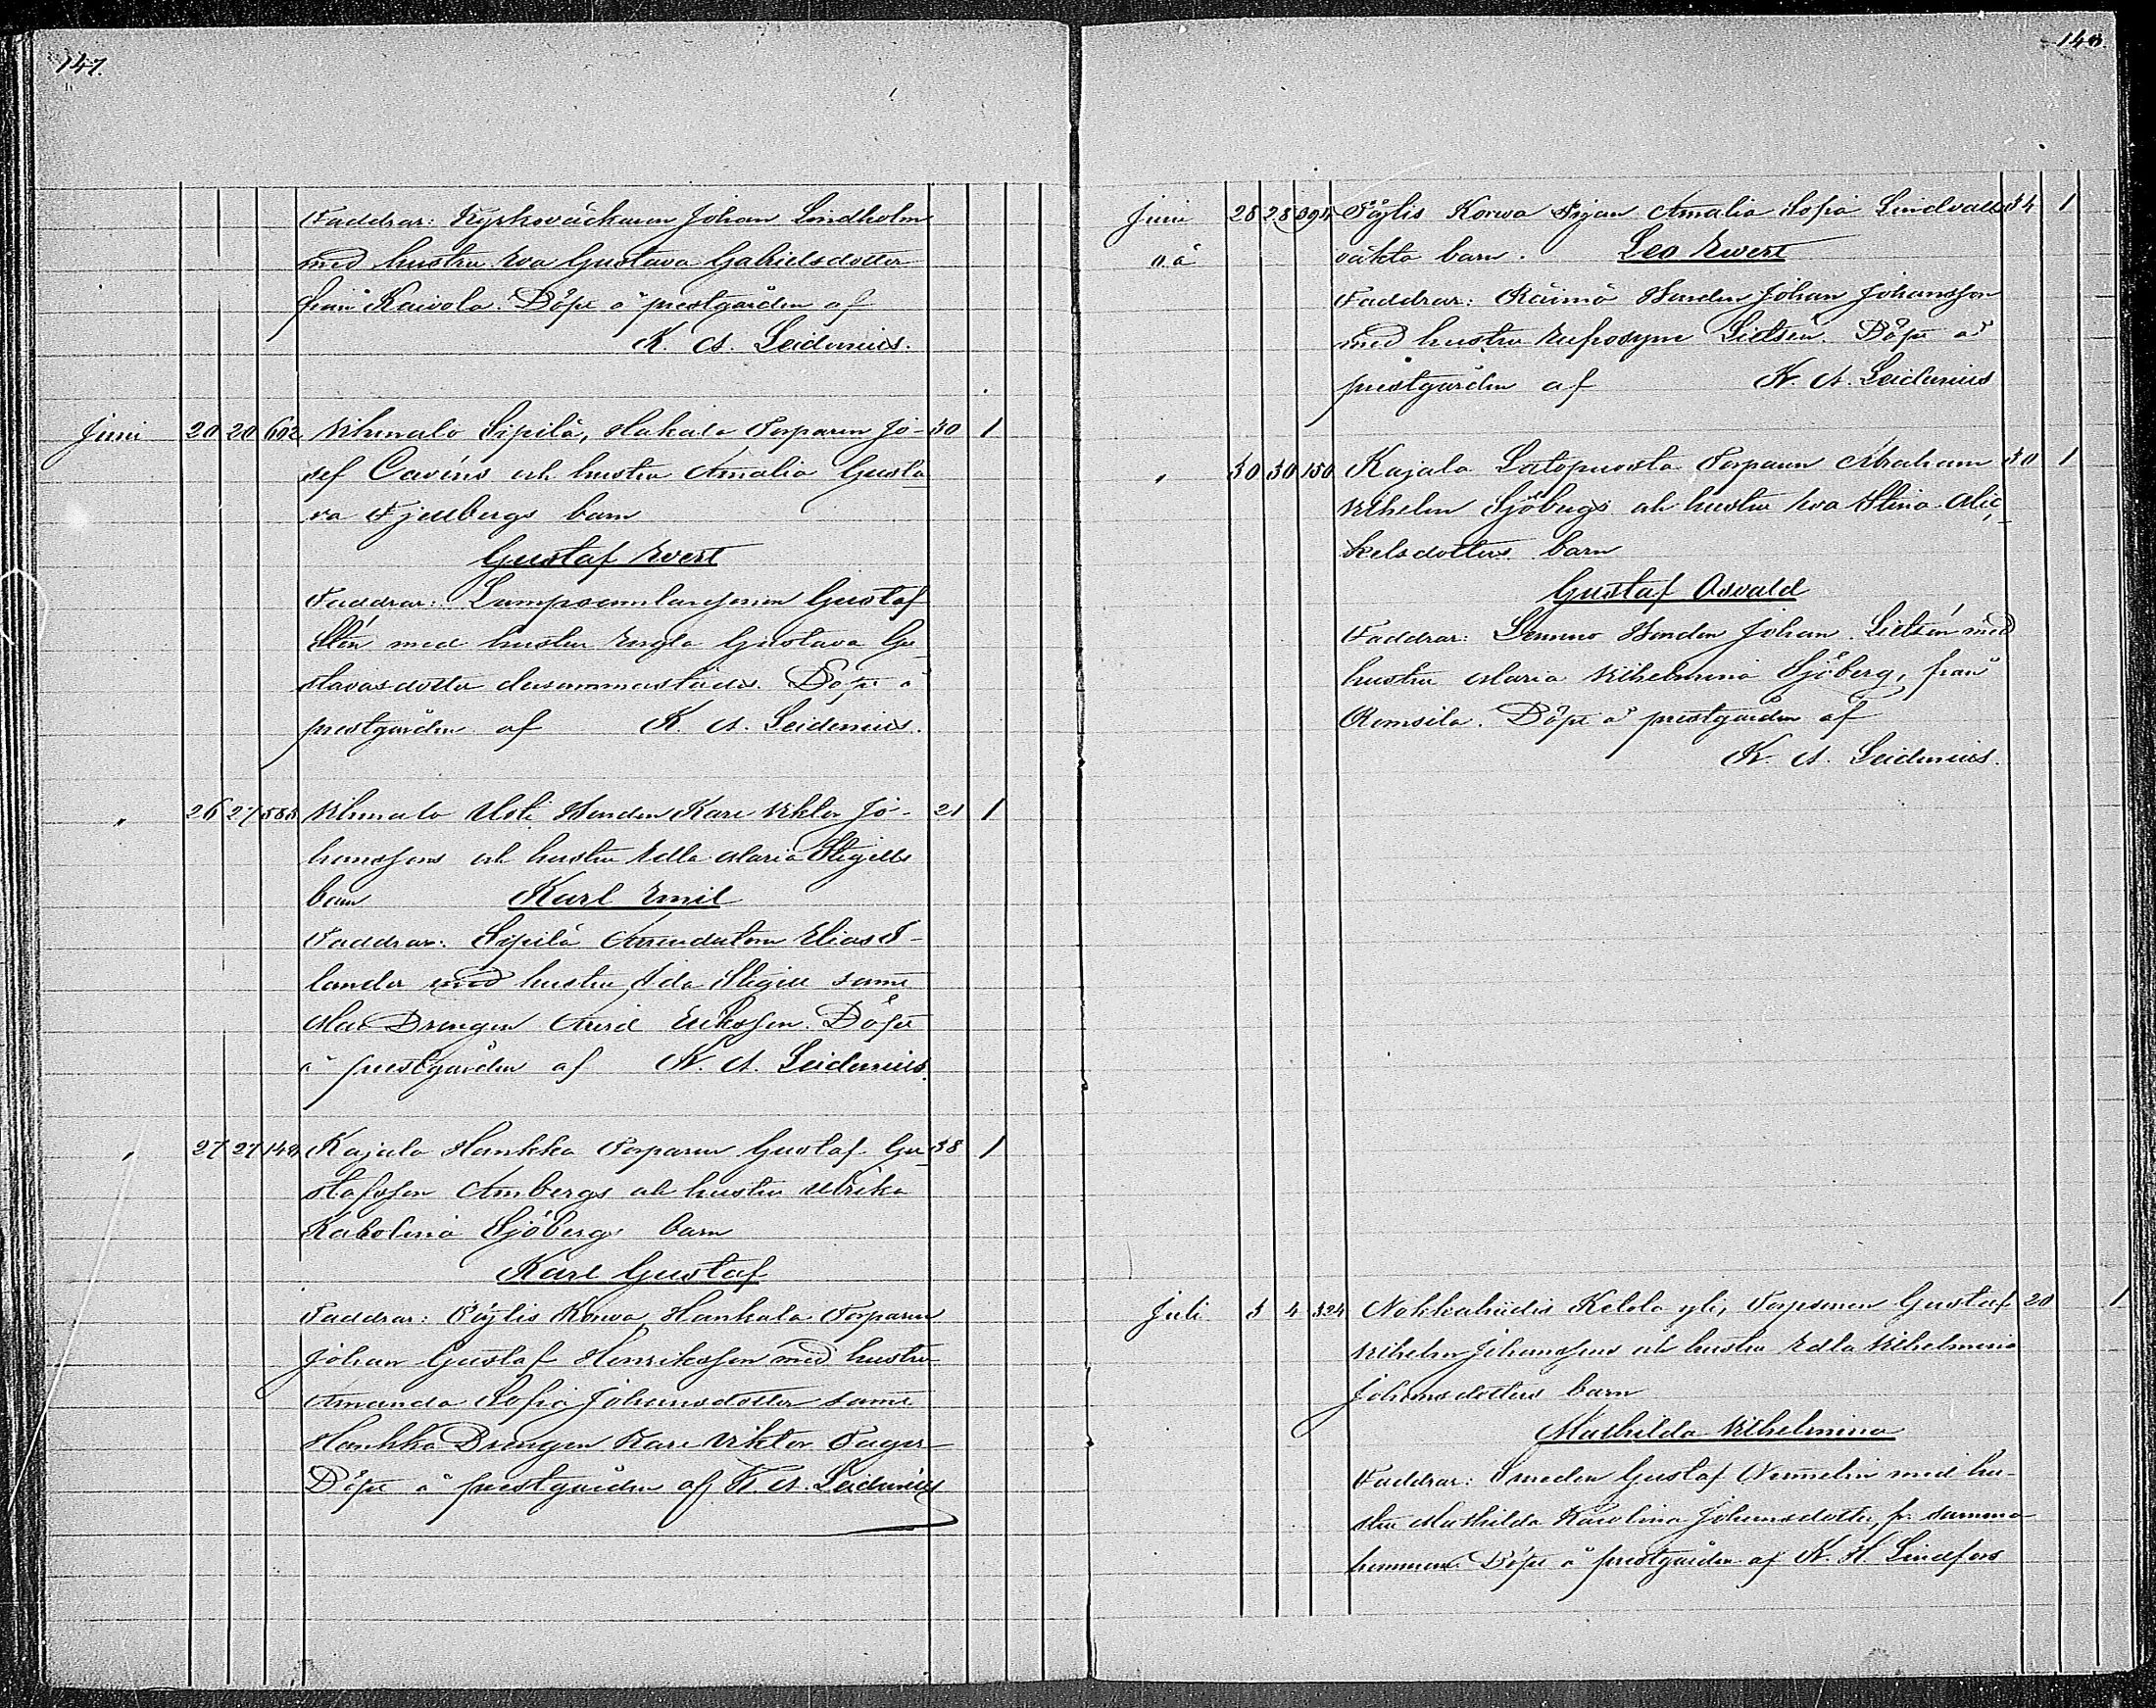 147.
Faddrar: Kyrkoväckaren Johan Lindholm
med hustru Eva Gustava Gabrielsdotter
från Kaivola. Döpt å prestgården af
K. A. Leidenius.
Juni 20 20 602 Vihmalo Sipilä, Hakala Torparen Jo- 30 1
sef Cavéns och hustru Amalia Gusta
va Fjellbergs barn
Gustaf Evert
Faddrar: Lumpsamlaresonen Gustaf
Stén med hustru Engla Gustava Gu
stavasdotter dersammastädes. Döpt å
prestgården af K. A. Leidenius.
" 26 27 583 Vihmalo Uoti Bonden Karl Viktor Jo- 21 1
hanssons och hustru Edla Maria Stigells
barn Karl Emil
Faddrar: Sipilä Arrendatorn Elias I-
lander med hustru Ida Stigell samt
Drengen Arvid Eriksson. Döpt
å prestgården af K. A. Leidenius.
" 27 27 149 Kajala Hankka Torparen Gustaf Gu- 38 1
stafsson Ambergs och hustru Ulrika
Karolina Sjöbergs barn
Karl Gustaf
Faddrar: Töylis Korva Hankala Torparen
Johan Gustaf Henriksson med hustru
Amanda Sofia Johansdotter samt
Hankka Drengen Karl Viktor Fager
Döpt å prestgården af K. A. Leidenius
148.
Juni 28 28 394 Töylis Korwa Pigan Amalia Sofia Lindvalls 34 1
o.ä oäkta barn. Leo Evert
Faddrar: Räimä Bonden Johan Johansson
med hustru Eufrosyne Sietsén. Döpt å
prestgården af K. A. Leidenius
" 30 30 150 Kajala Latopuosta Torparen Abraham 30 1
Vilhelm Sjöbergs och hustru Eva Stina Mic
kelsdotters barn
Gustaf Osvald
Faddrar: Bonden Johan Sietsén med
hustru Maria Vilhelmina Sjöberg, från
Romsila. Döpt å prestgården af
K. A. Leidenius.
Juli 3 4 324 Nokkahiidis Kelola yli, Torpsonen Gustaf 20 1
Vilhelm Johanssons och hustru Edla Vilhelmina
Johansdotters barn
Mathilda Vilhelmina
Faddrar: Smeden Gustaf Nummelin med hu-
stru Mathilda Karolina Johansdotter, fr. samma
hemman. Döpt å prestgården af K. H. Lindfors